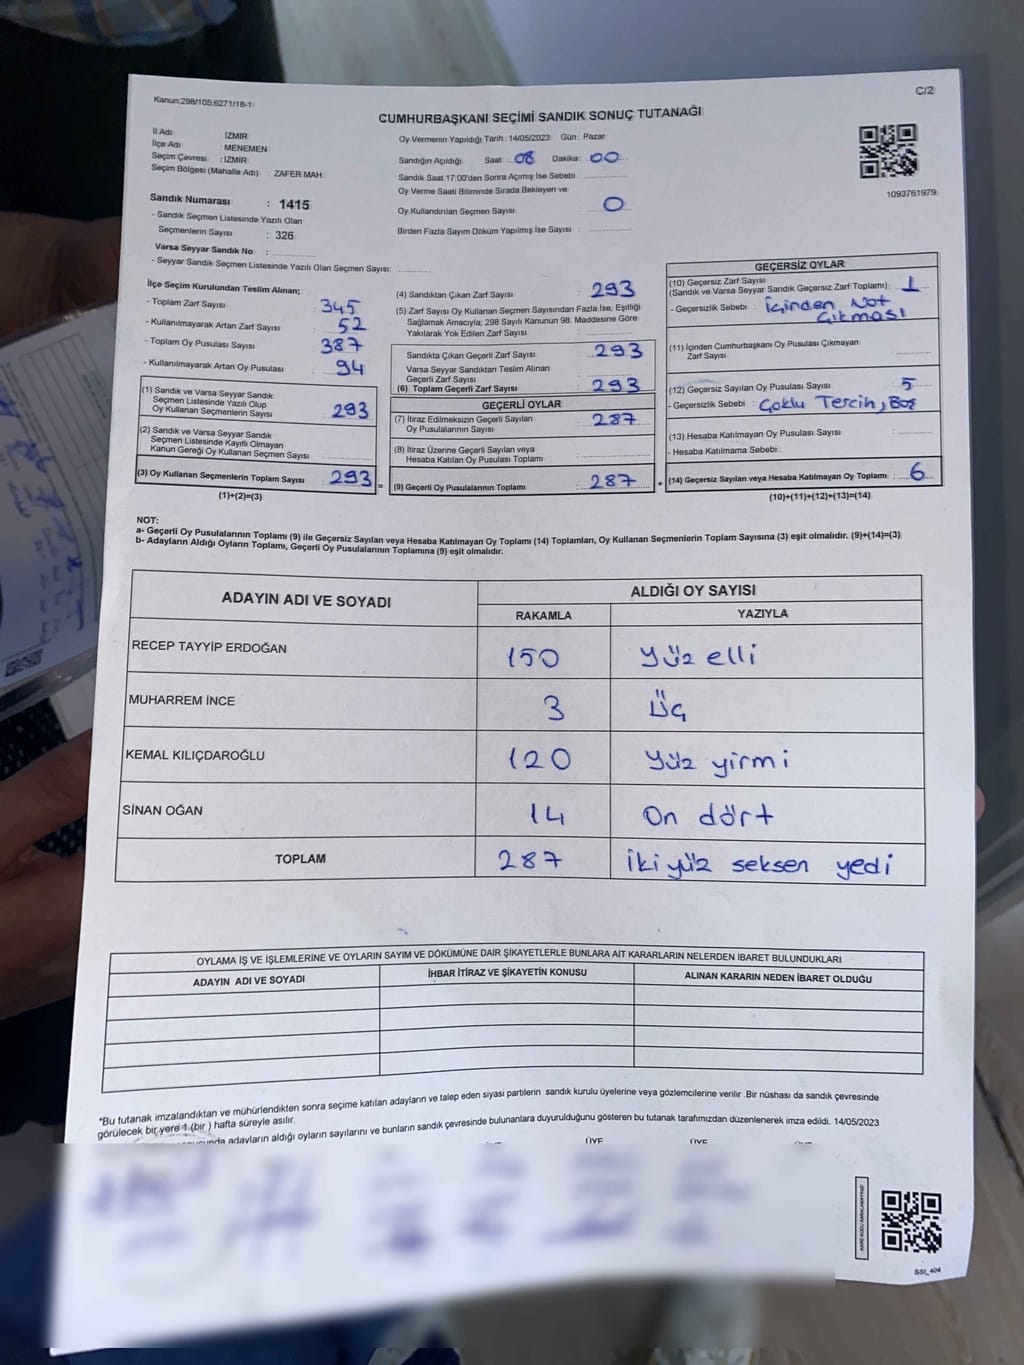 Kanun:298/105;6271/18-1
C/2
CUMHURBAŞKANI SEÇİMİ SANDIK SONUÇ TUTANAĞI
İl Adı : İZMİR
İlçe Adı : MENEMEN
Seçim Çevresi : İZMİR
Seçim Bölgesi (Mahalle Adı) : ZAFER MAH
Sandık Numarası : 1415
- Sandık Seçmen Listesinde Yazılı Olan
Seçmenlerin Sayısı : 326
Varsa Seyyar Sandık No :
- Seyyar Sandık Seçmen Listesinde Yazılı Olan Seçmen Sayısı:
Oy Vermenin Yapıldığı Tarih : 14/05/2023 Gün : Pazar
Sandığın Açıldığı Saat : 08 Dakika : 00
Sandık Saat 17:00'den Sonra Açımış İse Sebebi
Oy Verme Saati Bitiminde Sırada Bekleyen ve
Oy Kullandırılan Seçmen Sayısı : 0
Birden Fazla Sayım Döküm Yapılmış İse Sayısı :
1093761979
İlçe Seçim Kurulundan Teslim Alınan;
- Toplam Zarf Sayısı : 345
- Kullanılmayarak Artan Zarf Sayısı : 52
- Toplam Oy Pusulası Sayısı : 387
- Kullanılmayarak Artan Oy Pusulası : 94
(1) Sandık ve Varsa Seyyar Sandık
Seçmen Listesinde Yazılı Olup
Oy Kullanan Seçmenlerin Sayısı : 293
(2) Sandık ve Varsa Seyyar Sandık
Seçmen Listesinde Kayıtlı Olmayan
Kanun Gereği Oy Kullanan Seçmen Sayısı :
(3) Oy Kullanan Seçmenlerin Toplam Sayısı : 293
(1)+(2)=(3)
(4) Sandıktan Çıkan Zarf Sayısı : 293
(5) Zarf Sayısı Oy Kullanan Seçmen Sayısından Fazla İse, Eşitliği
Sağlamak Amacıyla; 298 Sayılı Kanunun 98. Maddesine Göre
Yakılarak Yok Edilen Zarf Sayısı :
Sandıkta Çıkan Geçerli Zarf Sayısı : 293
Varsa Seyyar Sandıktan Teslim Alınan
Geçerli Zarf Sayısı :
(6) Toplam Geçerli Zarf Sayısı : 293
GEÇERLİ OYLAR
(7) İtiraz Edilmeksizin Geçerli Sayılan
Oy Pusulalarının Sayısı : 287
(8) İtiraz Üzerine Geçerli Sayılan veya
Hesaba Katılan Oy Pusulası Toplamı :
(9) Geçerli Oy Pusulalarının Toplamı : 287
GEÇERSİZ OYLAR
(10) Geçersiz Zarf Sayısı
(Sandık ve Varsa Seyyar Sandık Geçersiz Zarf Toplamı) : 1
- Geçersizlik Sebebi : İçinden Not
Çıkması
(11) İçinden Cumhurbaşkanı Oy Pusulası Çıkmayan
Zarf Sayısı
(12) Geçersiz Sayılan Oy Pusulası Sayısı : 5
- Geçersizlik Sebebi : Çoklu Tercih, Boş
(13) Hesaba Katılmayan Oy Pusulası Sayısı :
- Hesaba Katılmama Sebebi :
(14) Geçersiz Sayılan veya Hesaba Katılmayan Oy Toplamı : 6
(10)+(11)+(12)+(13)=(14)
NOT:
a- Geçerli Oy Pusulalarının Toplamı (9) ile Geçersiz Sayılan veya Hesaba Katılmayan Oy Toplamı (14) Toplamları, Oy Kullanan Seçmenlerin Toplam Sayısına (3) eşit olmalıdır. (9)+(14)=(3)
b- Adayların Aldığı Oyların Toplamı, Geçerli Oy Pusulalarının Toplamına (9) eşit olmalıdır.
ADAYIN ADI VE SOYADI ALDIĞI OY SAYISI
RAKAMLA YAZIYLA
RECEP TAYYİP ERDOĞAN 150 Yüz elli
MUHARREM İNCE 3 Üç
KEMAL KILIÇDAROĞLU 120 Yüz yirmi
SİNAN OĞAN 14 On dört
TOPLAM 287 İki yüz seksen yedi
OYLAMA İŞ VE İŞLEMLERİNE VE OYLARIN SAYIM VE DÖKÜMÜNE DAİR ŞİKAYETLERLE BUNLARA AİT KARARLARIN NELERDEN İBARET BULUNDUKLARI
ADAYIN ADI VE SOYADI İHBAR İTİRAZ VE ŞİKAYETİN KONUSU ALINAN KARARIN NEDEN İBARET OLDUĞU
*Bu tutanak imzalandıktan ve mühürlendikten sonra seçime katılan adayların ve talep eden siyasi partilerin sandık kurulu üyelerine veya gözlemcilerine verilir .Bir nüshası da sandık çevresinde
görülecek bir yere 1 (bir ) hafta süreyle asılır.
adayların aldığı oyların sayılarını ve bunların sandık çevresinde bulunanlara duyurulduğunu gösteren bu tutanak tarafımızdan düzenlenerek imza edildi. 14/05/2023
ÜYE ÜYE
SSI_404